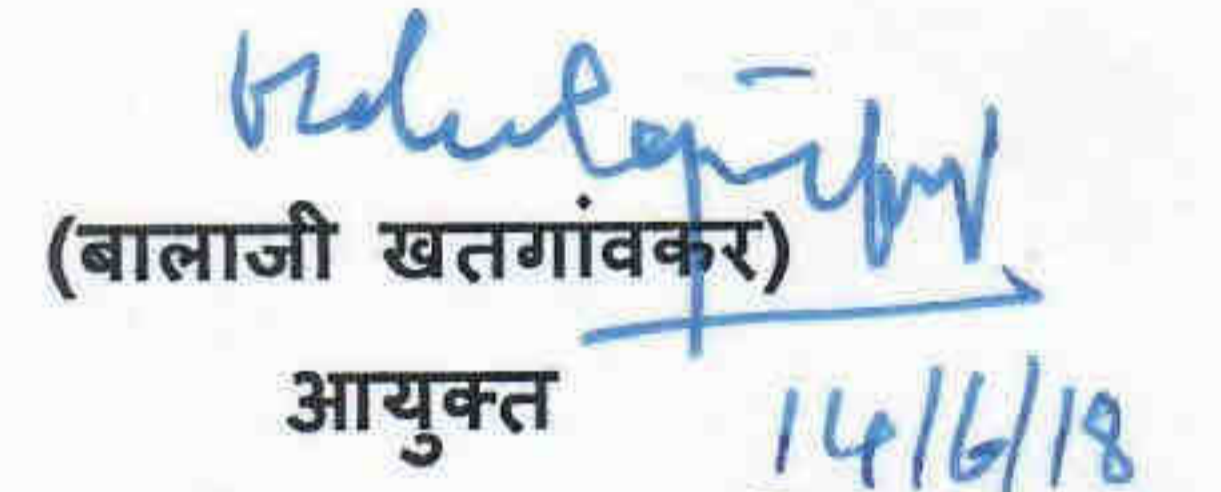 (बालाजी खतगांवकर)
आयुक्त
14/6/18